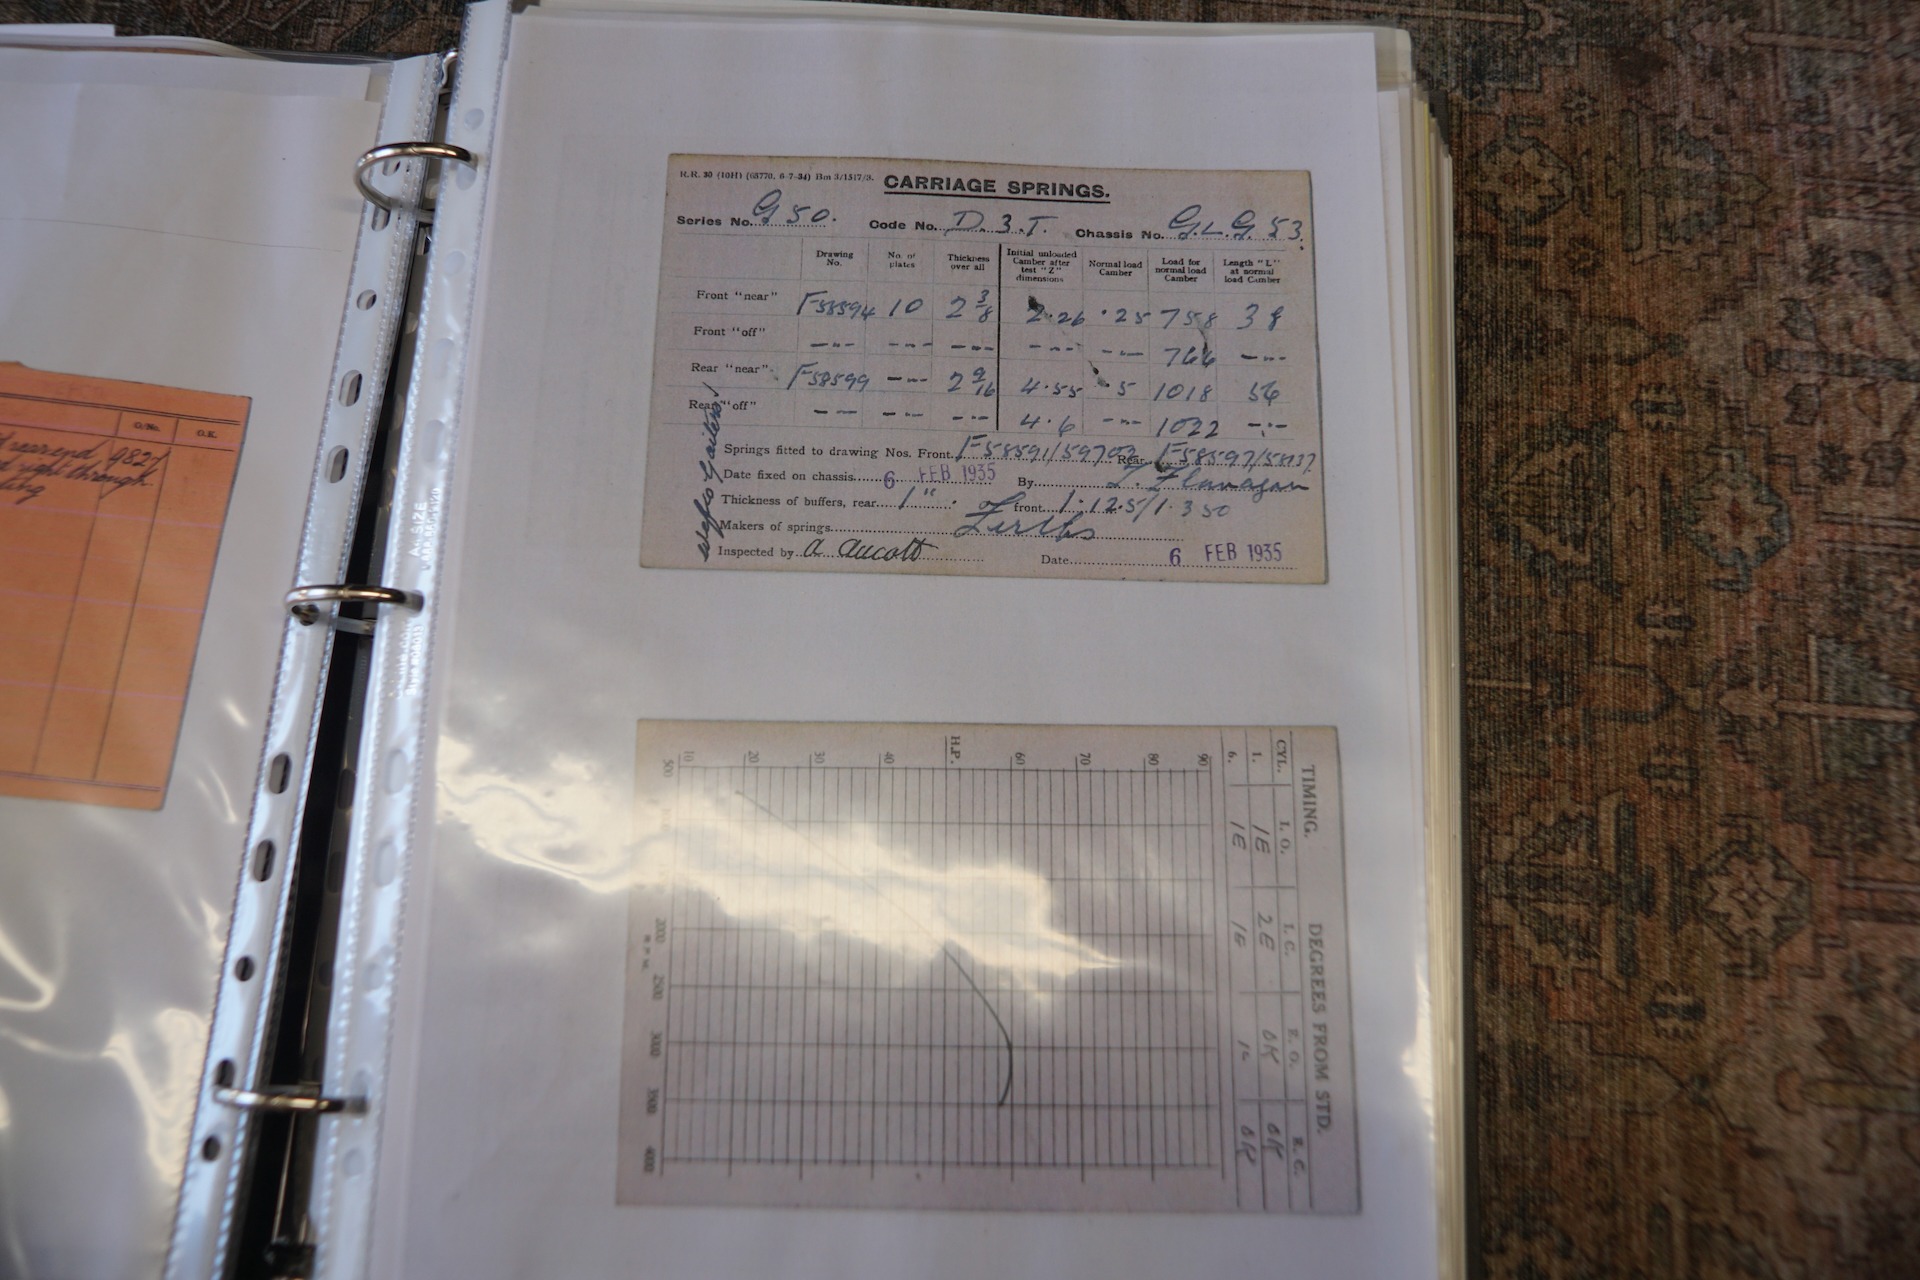 G/No. O.K.
rear end 9827
right through
R.R. 30 (10H) (68770, 6-7-34) Bm 3/1517/3.
CARRIAGE SPRINGS.
Series No. G 50. Code No. D.3.T. Chassis No. G.L.G. 53.
Drawing No. No. of plates Thickness over all Initial unloaded Camber after test "Z" dimensions Normal load Camber Load for normal load Camber Length "L" at normal load Camber
Front "near" F58594 10 2 3/8 2.26 .25 758 38
Front "off" -"- -"- -"- -"- -"- 766 -"-
Rear "near" F58599 -"- 2 9/16 4.55 .5 1018 56
Rear "off" -"- -"- -"- 4.6 -"- 1022 -"-
Springs fitted to drawing Nos. Front F58591/59703 Rear
Date fixed on chassis 6 FEB 1935 By Flanagan
Thickness of buffers, rear 1". front 1.125/1.350
Makers of springs Firths
Inspected by A Aucott Date 6 FEB 1935
Gaiters
TIMING. DEGREES FROM STD.
CYL. I.O. I.C. E.O. E.C.
1. 1E 2E OK OK
6. 1E 1E OK
90
80
70
60
H.P.
40
30
20
10
500 2000 2500 3000 3500 4000
R.P.M.